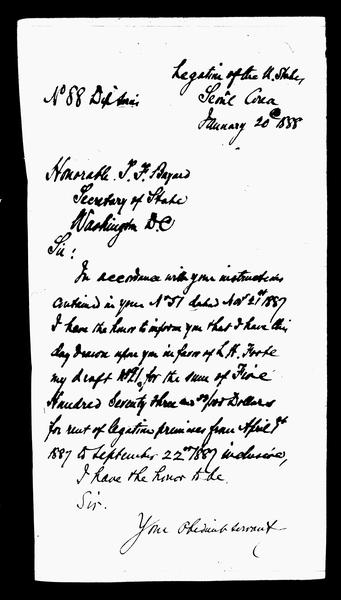 Legation of the U. States,
Seoul Corea
January 20th 1888
No 88 Dip Series
Honorable T. F. Bayard
Secretary of State
Washington D.C
Sir:
In accordance with your instructions
contained in your No 51 dated Nov 21st 1887
I have the honor to inform you that I have this
day drawn upon you in favor of L. H. Foote
my draft No 21 for the sum of Five
Hundred Seventy three and /100 Dollars
for rent of legation premises from April 9th
1887 to September 22nd 1887 inclusive,
I have the honor to be
Sir.
Your Obedient servant